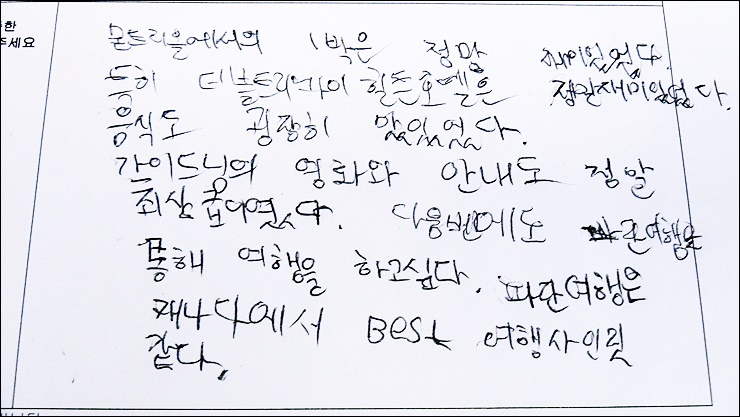 한
주세요
몬트리올에서의 1박은 정말 재미있었다.
특히 더블트리바이힐튼호텔은 정말재미있었다.
음식도 굉장히 맛있었다.
가이드님의 영화와 안내도 정말
최상급이였다. 다음번에도 파란여행을
통해 여행을 하고싶다. 파란여행은
캐나다에서 BEST 여행사인것
같다.